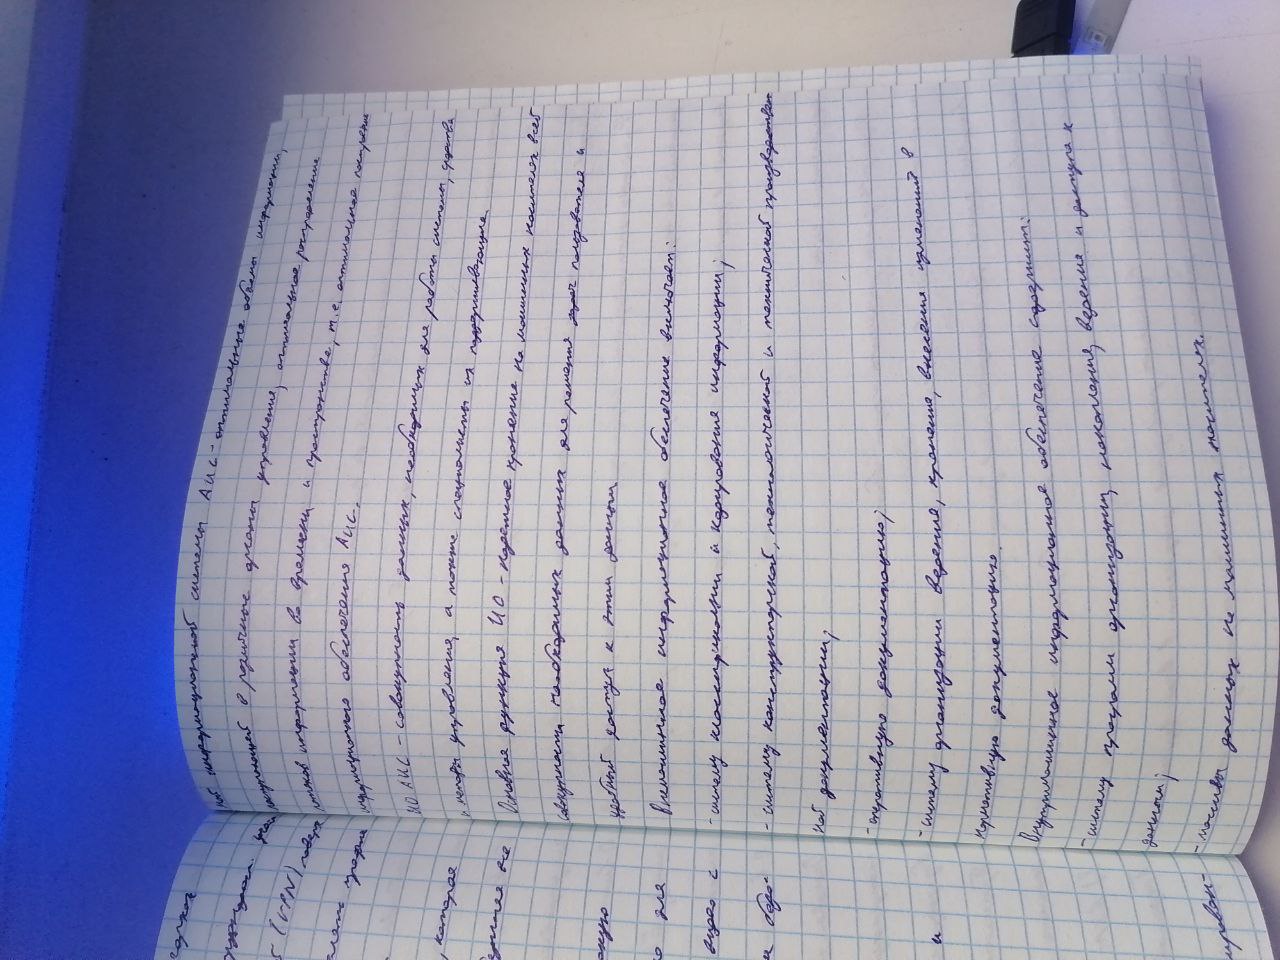 ной информационной системы АИС - оптимальные объемы информации,
поступающей в различные органы управления, оптимальное распределение
потоков информации во времени и пространстве, т.е. оптимальное построение
информационного обеспечения АИС.
ИО АИС - совокупность данных, необходимых для работы системы, средства
и методы управления, а также специалисты их поддерживающие.
Основная функция ИО - надежное хранение на машинных носителях всей
совокупности необходимых данных для решения задач пользователя и
удобный доступ к этим данным.
Внемашинное информационное обеспечение включает:
- систему классификации и кодирования информации;
- систему конструкторской, технологической и технической производствен-
ной документации;
- оперативную документацию;
- систему организации ведения, хранения, внесения изменений в
нормативную документацию.
Внутримашинное информационное обеспечение содержит:
- систему программ организации, накопления, ведения и доступа к
данным;
- массивы данных на машинных носителях.
(VPN) поверх
которая
для
видео с
и